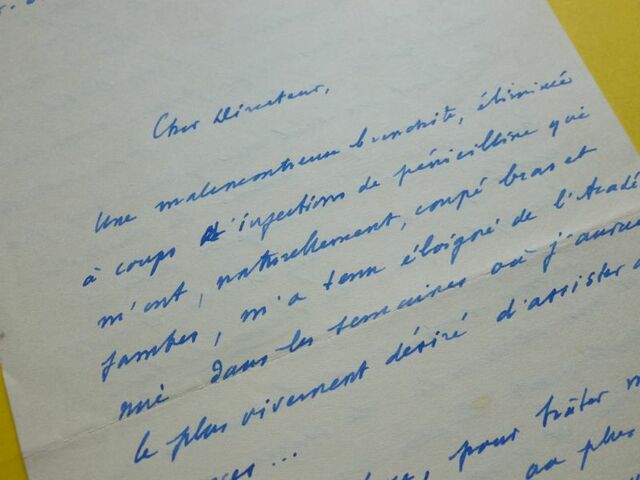 Cher Directeur,
Une malencontreuse bronchite, éliminée
à coups d'injections de pénicilline qui
m'ont, naturellement, coupé bras et
jambes, m'a tenu éloigné de l'Acadé
mie dans les semaines où j'aurais
le plus vivement désiré d'assister
...
, pour hâter m
au plus